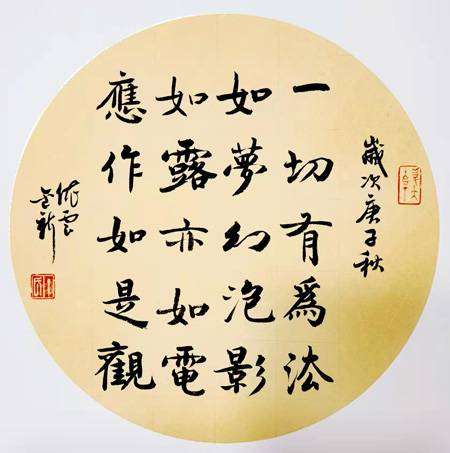 歲次庚子秋
一切有爲法
如夢幻泡影
如露亦如電
應作如是觀